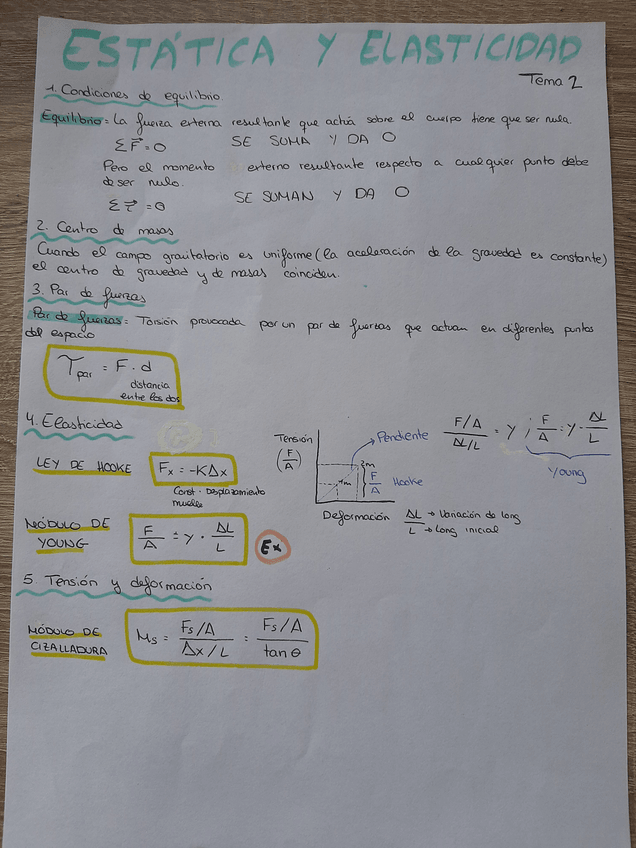 ESTÁTICA Y ELASTICIDAD
Tema 2
1. Condiciones de equilibrio.
Equilibrio = La fuerza externa resultante que actúa sobre el cuerpo tiene que ser nula.
ΣF⃗ = 0 SE SUMA Y DA 0
Pero el momento externo resultante respecto a cualquier punto debe
de ser nulo.
Στ⃗ = 0 SE SUMAN Y DA 0
2. Centro de masas
Cuando el campo gravitatorio es uniforme (la aceleración de la gravedad es constante)
el centro de gravedad y de masas coinciden.
3. Par de fuerzas
Par de fuerzas = Torsión provocada por un par de fuerzas que actuan en diferentes puntos
del espacio
τpar = F · d
distancia
entre los dos
4. Elasticidad
LEY DE HOOKE
Fx = -KΔx
Const · Desplazamiento
muelle
Tensión
(F/A)
Pendiente
2m
F/A Hooke
Deformación
ΔL → Variación de long
L → Long inicial
(F/A)/(ΔL/L) = Y ; F/A = Y · ΔL/L
Young
MÓDULO DE
YOUNG
F/A = Y · ΔL/L
Ex
5. Tensión y deformación
MÓDULO DE
CIZALLADURA
Ms = (Fs/A)/(Δx/L) = (Fs/A)/(tan θ)